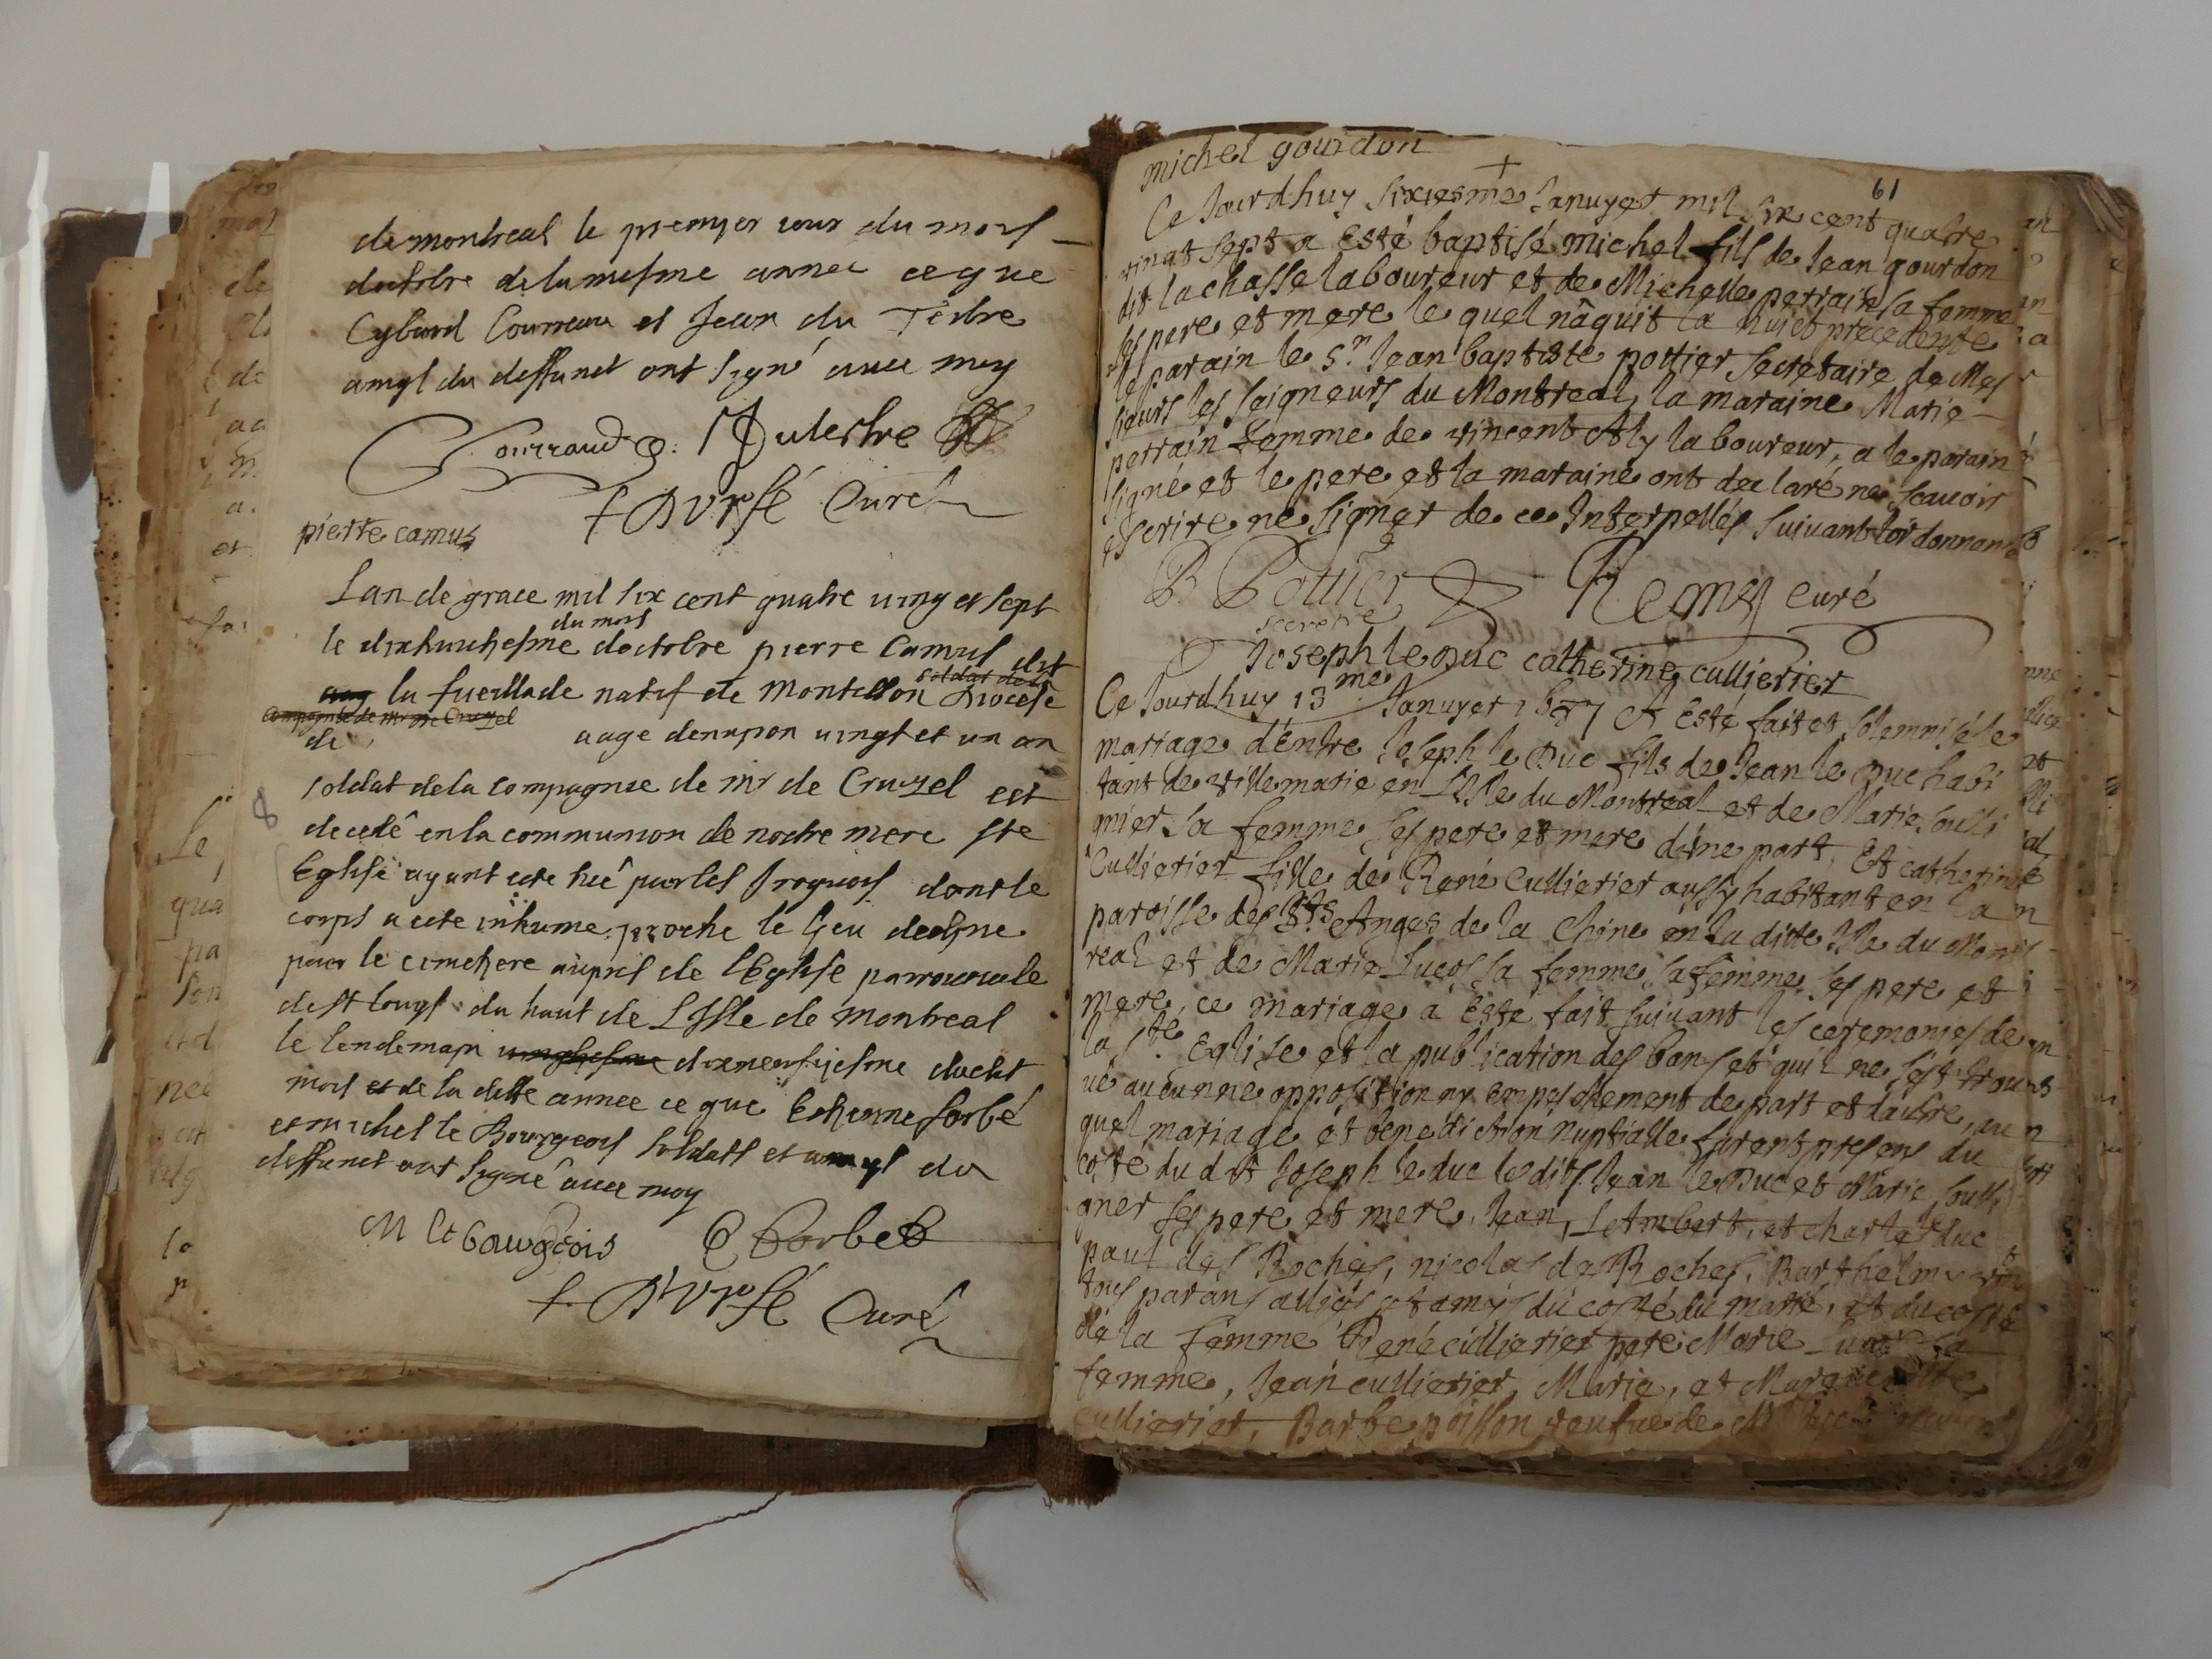 de montreal le premyer iour du moys
doctobre de la mesme annee ce que
Cybard Courraud et Jean du Tertre
amys du deffunct ont signé avec moy
Courraud Dutertre
+ DVrfé Curé
pierre camus
Lan de grace mil six cent quatre vingt et sept
le dixhuictiesme du moys doctobre pierre Camus dit
la fueillade natif de Diocese
soldat de la
compagnie de mr de Cruzel
de aage denviron vingt et un an
soldat de la compagnie de mr de Cruzel est
decedé en la communion de nostre mere ste
Eglise ayant esté tué par les Iroquois dont le
corps a esté inhumé proche le lieu designé
pour le cimetiere aupres de lEglise parroissiale
de st louys du haut de LIsle de montreal
le lendemain dixneufviesme dudit
mois et de la ditte annee ce que Estienne forbé
et michel le Bourgeois soldats et amys du
deffunct ont signé avec moy
M le bourgeois Forbes
+ DVrfé Curé
michel gourdon
+
61
Ce Jourdhuy sixiesme Janvyer mil six cent quatre
vingt sept a Esté baptisé michel fils de Jean gourdon
dit lachasse laboureur et de Michelle perrain sa femme
ses pere et mere le quel nâquit la nuict precedente
le parain le Sr. Jean baptiste pottier secretaire de Mes
sieurs les seigneurs du Montreal, la maraine Marie
perrain femme de vincent Aly laboureur, a le parain
signé et le pere et la maraine ont declaré ne scavoir
escrire ne signer de ce Interpellés suivant lordonnance
B Pottier Remy curé
secretre
Joseph le Duc catherine cullierier
Ce Jourdhuy 13me Janvyer 1687 A Esté fait et solemnisé le
mariage d'entre Joseph le Duc fils de Jean le Duc habi
tant de villemarie en L'Isle du Montreal et de Marie soulli
gnier sa femme ses pere et mere d'une part, Et catherine
Cullierier fille de René Cullierier aussy habitant en la
paroisse des Sts Anges de la Chine en la ditte Isle du Mont
real et de Marie Lucos sa femme, sa femme ses pere et
mere, ce mariage a Esté fait suivant les ceremonies de
la Ste Eglise et la publication des bans et quil ne s'est trou
vé aucunne opposition ny empeschement de part et d'autre, au
quel mariage et benediction nuptialle furent presens du
costé du dit Joseph le duc lesdits Jean le Duc et Marie soulli
gner ses pere et mere, Jean, Lambert, et charles leduc
paul des Roches, nicolas des Roches, Barthelmy
tous parans alliés et amys du costé du marié, et du costé
de la femme René cullierier pere Marie Lucos sa
femme, Jean cullierier, Marie, et Marguerite
cullierier, Barbe poisson veufve de Mr